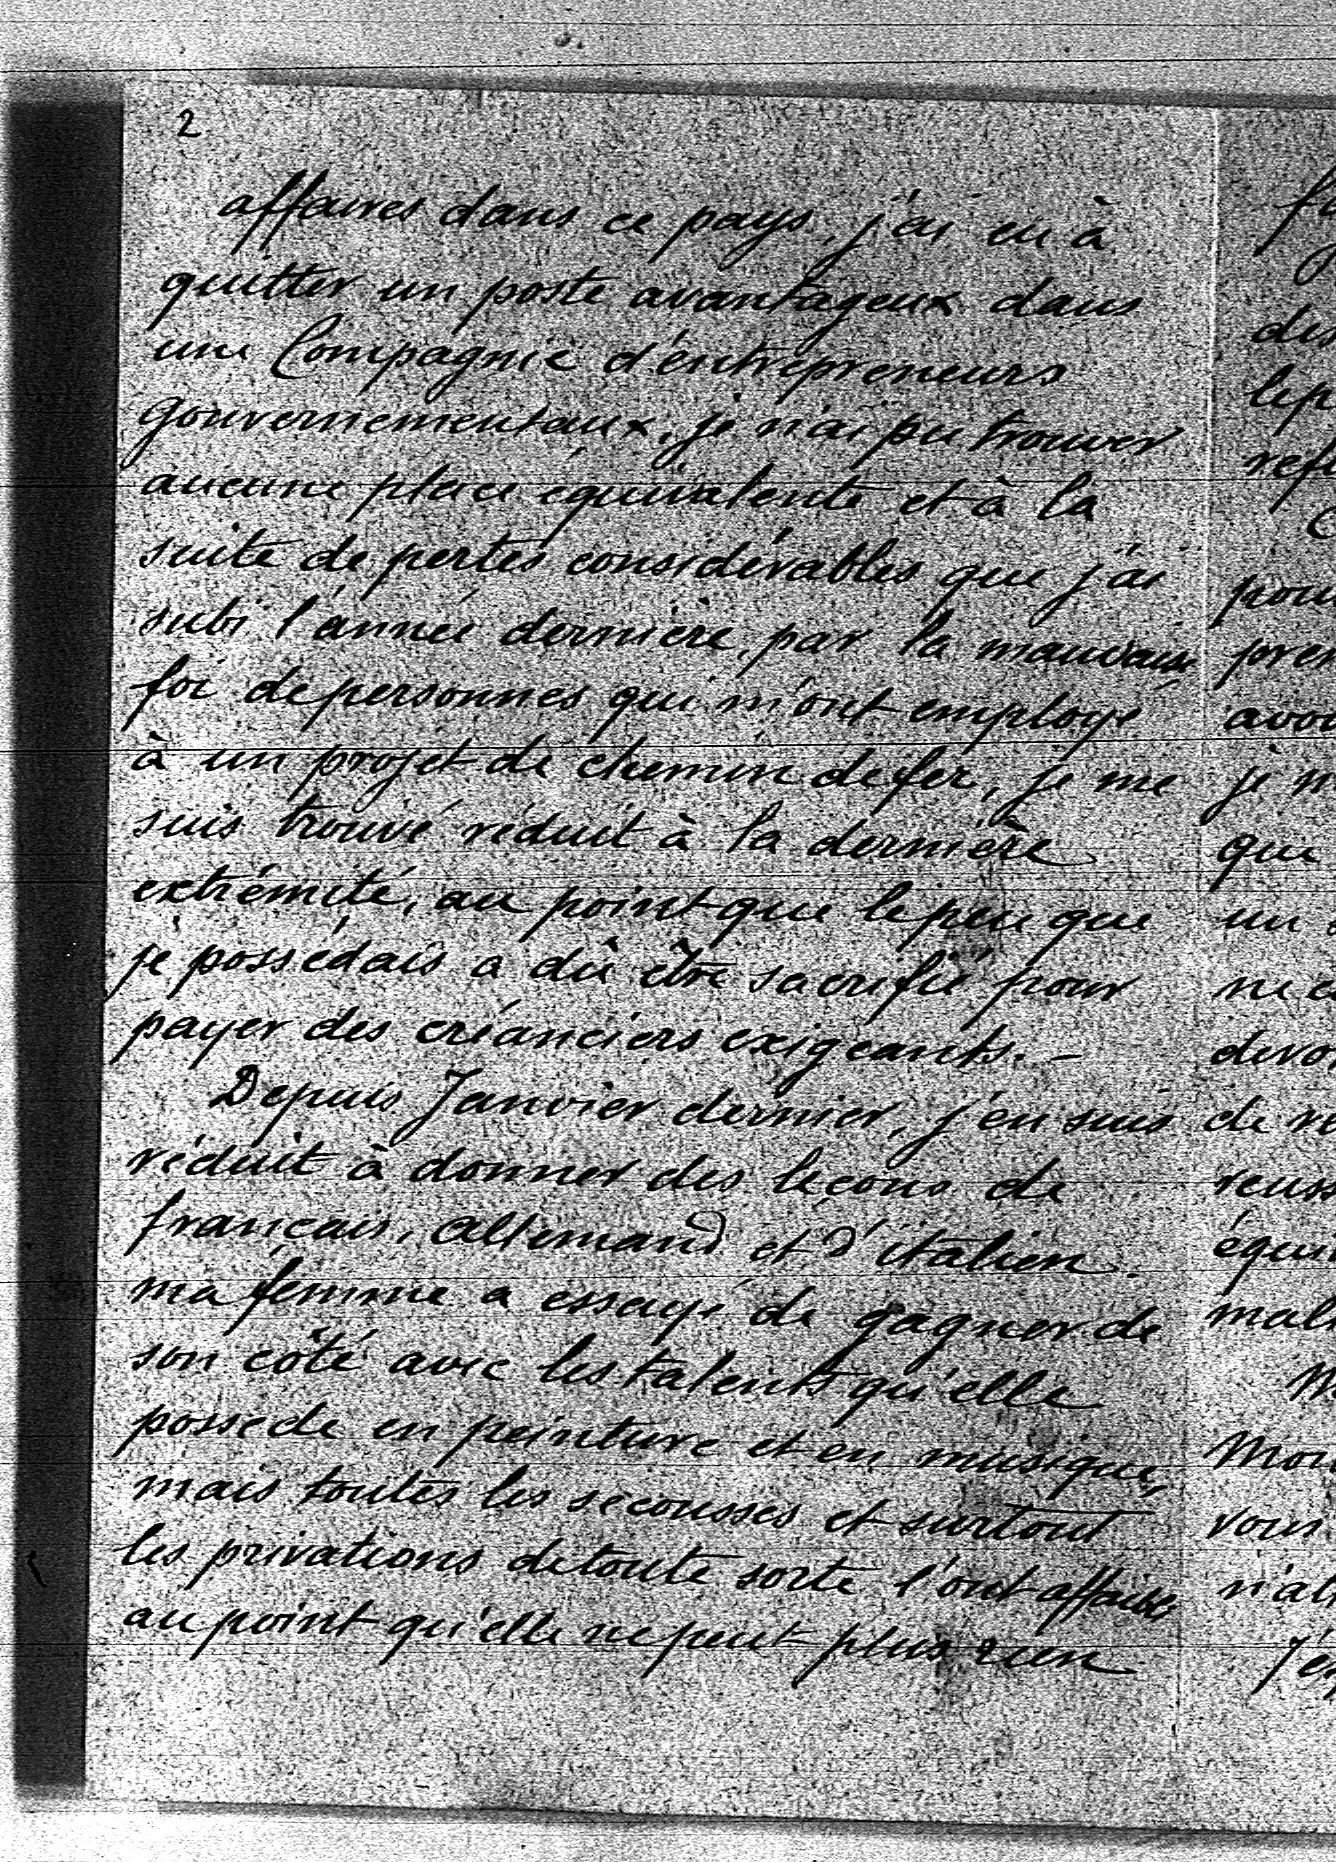 2
affaires dans ce pays, j'ai eu à
quitter un poste avantageux dans
une Compagnie d'entrepreneurs
gouvernementaux. je n'ai pu trouver
aucune place équivalente et à la
suite de pertes considérables que j'ai
subi l'année dernière, par la mauvaise
foi de personnes qui m'ont employé
à un projet de chemin de fer, je me
suis trouvé réduit à la dernière
extrémité, au point que le peu que
je possédais a dû être sacrifié pour
payer des créanciers exigeants. -
Depuis Janvier dernier, j'en suis
réduit à donner des leçons de
français, allemand et d'italien.
ma femme a essayé de gagner de
son côté avec les talents qu'elle
possède en peinture et en musique,
mais toutes les secousses et surtout
les privations de toute sorte l'ont affaibli
au point qu'elle ne peut plus rien